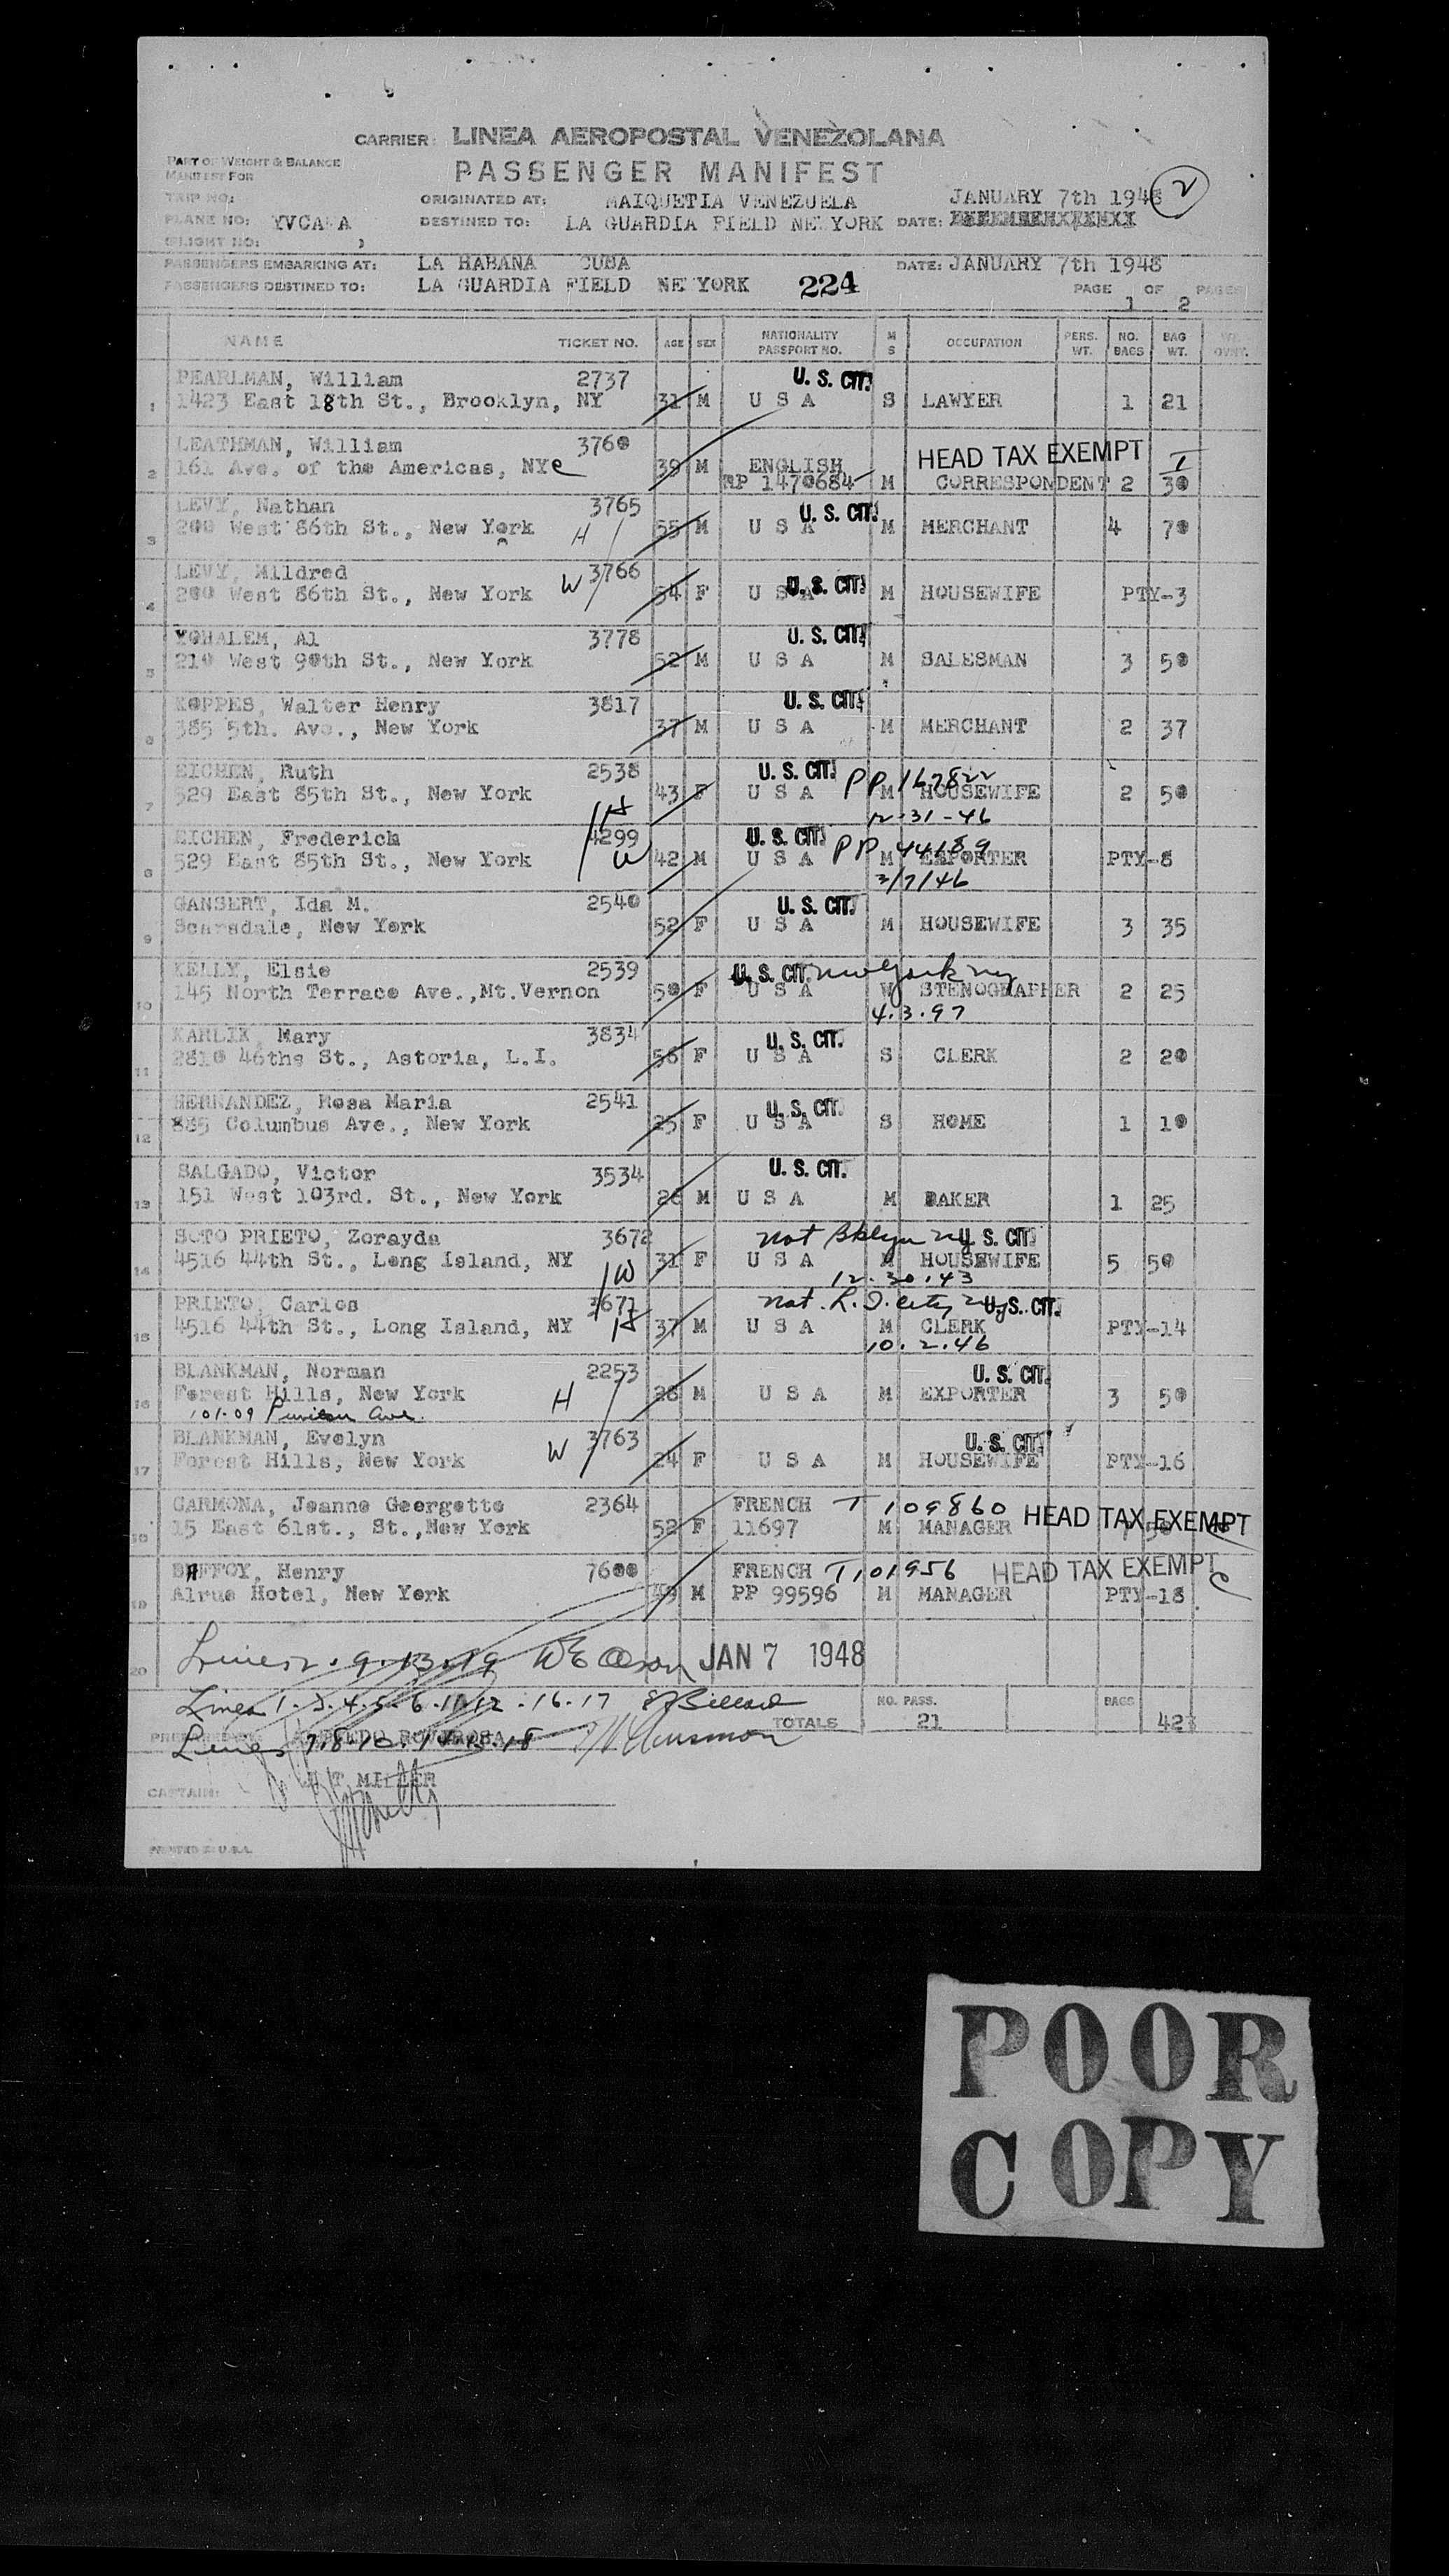 CARRIER: LINEA AEROPOSTAL VENEZOLANA
PART OF WEIGHT & BALANCE
MANIFEST FOR
PASSENGER MANIFEST
2
TRIP NO:
ORIGINATED AT: MAIQUETIA VENEZUELA JANUARY 7th 1948
PLANE NO: YVCAMA DESTINED TO: LA GUARDIA FIELD NE YORK DATE:
FLIGHT NO:
PASSENGERS EMBARKING AT: LA HABANA CUBA DATE: JANUARY 7th 1948
PASSENGERS DESTINED TO: LA GUARDIA FIELD NE YORK 224 PAGE 1 OF 2 PAGES
NAME TICKET NO. AGE SEX NATIONALITY PASSPORT NO. M S OCCUPATION PERS. WT. NO. BAGS BAG WT.
PEARLMAN, William 2737 U. S. CIT.
1 1423 East 18th St., Brooklyn, NY 31 M U S A S LAWYER 1 21
LEATHMAN, William 3760 HEAD TAX EXEMPT
2 161 Ave. of the Americas, NYc 39 M ENGLISH
PP 1470684 M CORRESPONDENT 2 30
LEVY, Nathan 3765 U. S. CIT.
3 200 West 86th St., New York H 55 M U S A M MERCHANT 4 70
LEVY, Mildred 3766 U. S. CIT.
4 200 West 86th St., New York W 54 F U S A M HOUSEWIFE PTY-3
YOHALEM, Al 3778 U. S. CIT.
5 210 West 90th St., New York 52 M U S A M SALESMAN 3 50
KOPPES, Walter Henry 3817 U. S. CIT.
6 385 5th. Ave., New York 37 M U S A M MERCHANT 2 37
EICHEN, Ruth 2538 U. S. CIT. PP 167822
7 529 East 85th St., New York H 43 F U S A M HOUSEWIFE 2 50
12-31-46
EICHEN, Frederich 4299 U. S. CIT. PP 44189
8 529 East 85th St., New York W 42 M U S A M EXPORTER PTY-8
3/7/46
GANSERT, Ida M. 2540 U. S. CIT.
9 Scarsdale, New York 52 F U S A M HOUSEWIFE 3 35
KELLY, Elsie 2539 U. S. CIT. New York ny
10 145 North Terrace Ave.,Mt.Vernon 50 F U S A W STENOGRAPHER 2 25
4.3.97
KARLIK, Mary 3834 U. S. CIT.
11 2810 46ths St., Astoria, L.I. 56 F U S A S CLERK 2 20
HERNANDEZ, Rosa Maria 2541 U. S. CIT.
12 885 Columbus Ave., New York 25 F U S A S HOME 1 10
SALGADO, Victor 3534 U. S. CIT.
13 151 West 103rd. St., New York 26 M U S A M BAKER 1 25
SOTO PRIETO, Zorayda 3672 nat Bklyn ny U. S. CIT.
14 4516 44th St., Long Island, NY W 31 F U S A M HOUSEWIFE 5 50
12.30.43
PRIETO, Carlos 3671 nat. L. I. City ny U. S. CIT.
15 4516 44th St., Long Island, NY H 37 M U S A M CLERK PTY-14
10.2.46
BLANKMAN, Norman 2253 U. S. CIT.
16 Forest Hills, New York H 28 M U S A M EXPORTER 3 50
101-09 Ave.
BLANKMAN, Evelyn 3763 U. S. CIT.
17 Forest Hills, New York W 24 F U S A M HOUSEWIFE PTY-16
CARMONA, Jeanne Georgette 2364 FRENCH T 109860 HEAD TAX EXEMPT
18 15 East 61st., St.,New York 52 F 11697 M MANAGER
BAFFOY, Henry 7600 FRENCH T101956 HEAD TAX EXEMPT
19 Alrue Hotel, New York 49 M PP 99596 M MANAGER PTY-18
20 Lines 2.9.13.19 JAN 7 1948
Lines 1.3.4.5.6.11.12.16.17 NO. PASS. 21 BAGS
TOTALS 428
Lines 7.8.10.14.15.18
CAPTAIN: MILLER
PRINTED IN U.S.A.
POOR
COPY